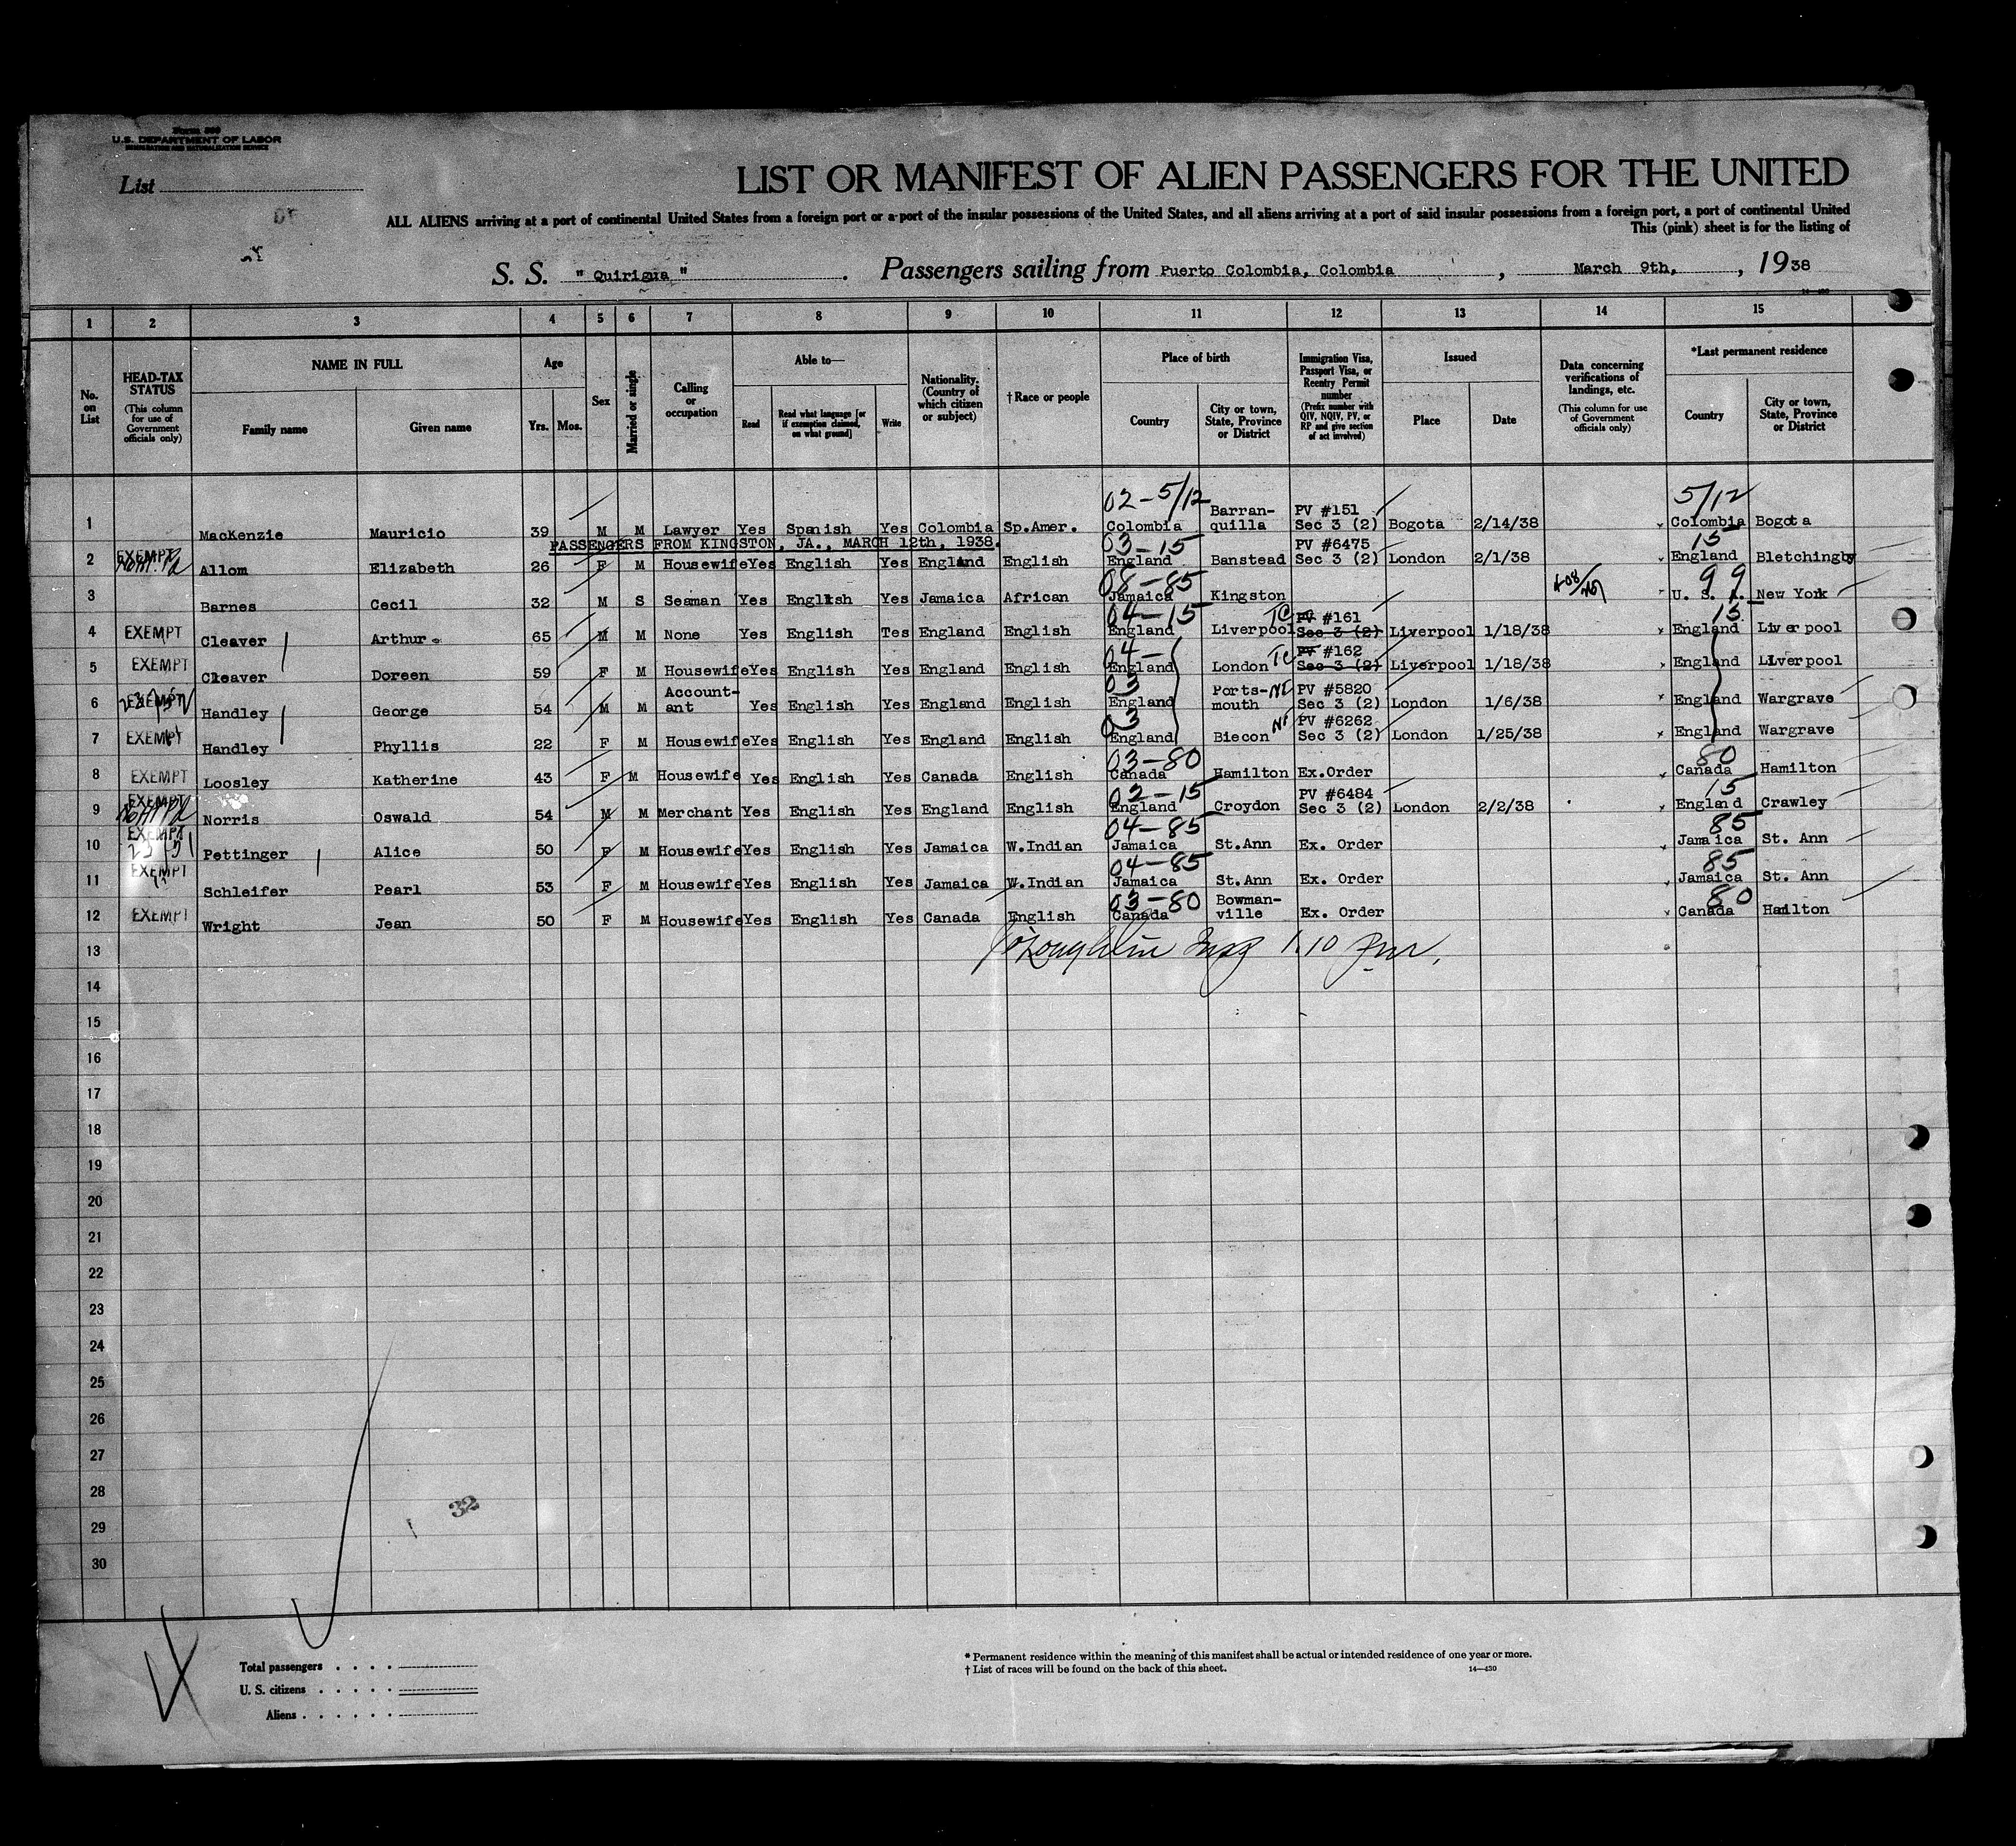 Form 500
U.S. DEPARTMENT OF LABOR
IMMIGRATION AND NATURALIZATION SERVICE
List
LIST OR MANIFEST OF ALIEN PASSENGERS FOR THE UNITED
ALL ALIENS arriving at a port of continental United States from a foreign port or a port of the insular possessions of the United States, and all aliens arriving at a port of said insular possessions from a foreign port, a port of continental United
This (pink) sheet is for the listing of
S. S. " Quirigua " . Passengers sailing from Puerto Colombia, Colombia , March 9th, , 1938
1 2 3 4 5 6 7 8 9 10 11 12 13 14 15
No. on List
HEAD-TAX STATUS (This column for use of Government officials only)
NAME IN FULL
Family name Given name
Age
Yrs. Mos.
Sex
Married or single
Calling or occupation
Able to—
Read Read what language [or if exemption claimed, on what ground] Write
Nationality. (Country of which citizen or subject)
† Race or people
Place of birth
Country City or town, State, Province or District
Immigration Visa, Passport Visa, or Reentry Permit number (Prefix number with QIV, NQIV, PV, or RP and give section of act involved)
Issued
Place Date
Data concerning verifications of landings, etc. (This column for use of Government officials only)
*Last permanent residence
Country City or town, State, Province or District
02-5/12 5/12
1 MacKenzie Mauricio 39 M M Lawyer Yes Spanish Yes Colombia Sp.Amer. Colombia Barran-quilla PV #151 Sec 3 (2) Bogota 2/14/38 Colombia Bogota
PASSENGERS FROM KINGSTON, JA., MARCH 12th, 1938.
03-15 15
2 EXEMPT Allom Elizabeth 26 F M Housewife Yes English Yes England English England Banstead PV #6475 Sec 3 (2) London 2/1/38 England Bletchingby
08-85 99
3 Barnes Cecil 32 M S Seaman Yes English Yes Jamaica African Jamaica Kingston U. S. A. New York
04-15 TC 15
4 EXEMPT Cleaver Arthur 65 M M None Yes English Tes England English England Liverpool PV #161 Sec 3 (2) Liverpool 1/18/38 England Liverpool
04- TC
5 EXEMPT Cleaver Doreen 59 F M Housewife Yes English Yes England English England London PV #162 Sec 3 (2) Liverpool 1/18/38 England Liverpool
03
6 EXEMPT Handley George 54 M M Account-ant Yes English Yes England English England Ports-mouth PV #5820 Sec 3 (2) London 1/6/38 England Wargrave
03
7 EXEMPT Handley Phyllis 22 F M Housewife Yes English Yes England English England Biecon PV #6262 Sec 3 (2) London 1/25/38 England Wargrave
03-80 80
8 EXEMPT Loosley Katherine 43 F M Housewife Yes English Yes Canada English Canada Hamilton Ex.Order Canada Hamilton
02-15 15
9 EXEMPT Norris Oswald 54 M M Merchant Yes English Yes England English England Croydon PV #6484 Sec 3 (2) London 2/2/38 England Crawley
04-85 85
10 EXEMPT Pettinger Alice 50 F M Housewife Yes English Yes Jamaica W.Indian Jamaica St.Ann Ex. Order Jamaica St. Ann
04-85 85
11 EXEMPT Schleifer Pearl 53 F M Housewife Yes English Yes Jamaica W.Indian Jamaica St.Ann Ex. Order Jamaica St. Ann
03-80 80
12 EXEMPT Wright Jean 50 F M Housewife Yes English Yes Canada English Canada Bowman-ville Ex. Order Canada Hamilton
13 1.10
14
15
16
17
18
19
20
21
22
23
24
25
26
27
28
29
30
32
Total passengers
U. S. citizens
Aliens
* Permanent residence within the meaning of this manifest shall be actual or intended residence of one year or more.
† List of races will be found on the back of this sheet. 14—430